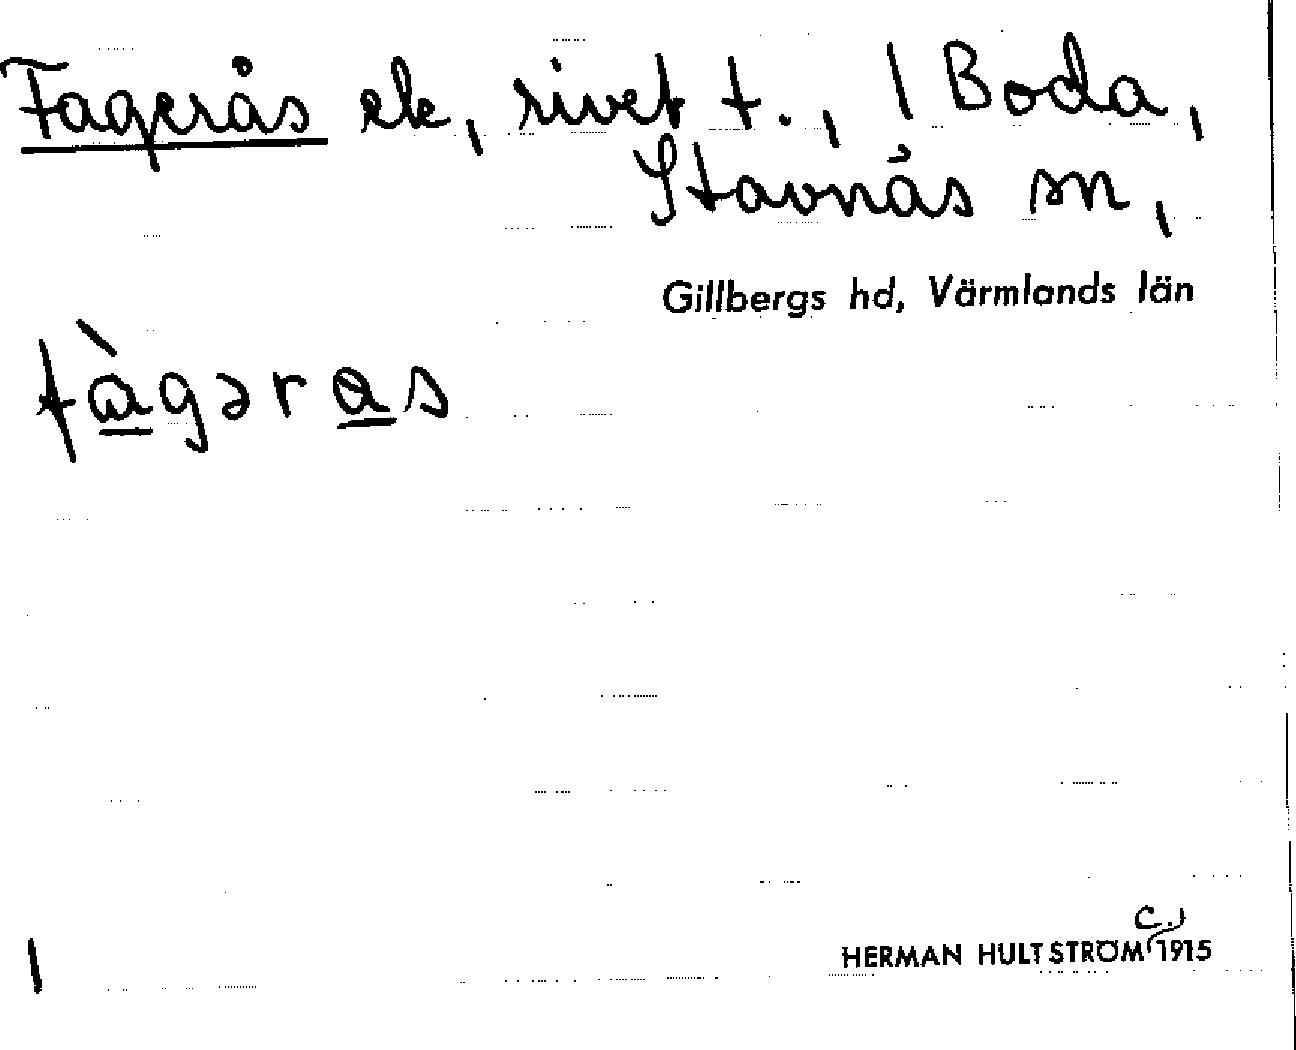 Fagerås ek, rivet t., / Boda,
Stavnäs sn,
Gillbergs hd, Värmlands län
fàgəras
/
c.
HERMAN HULTSTRÖM 1915